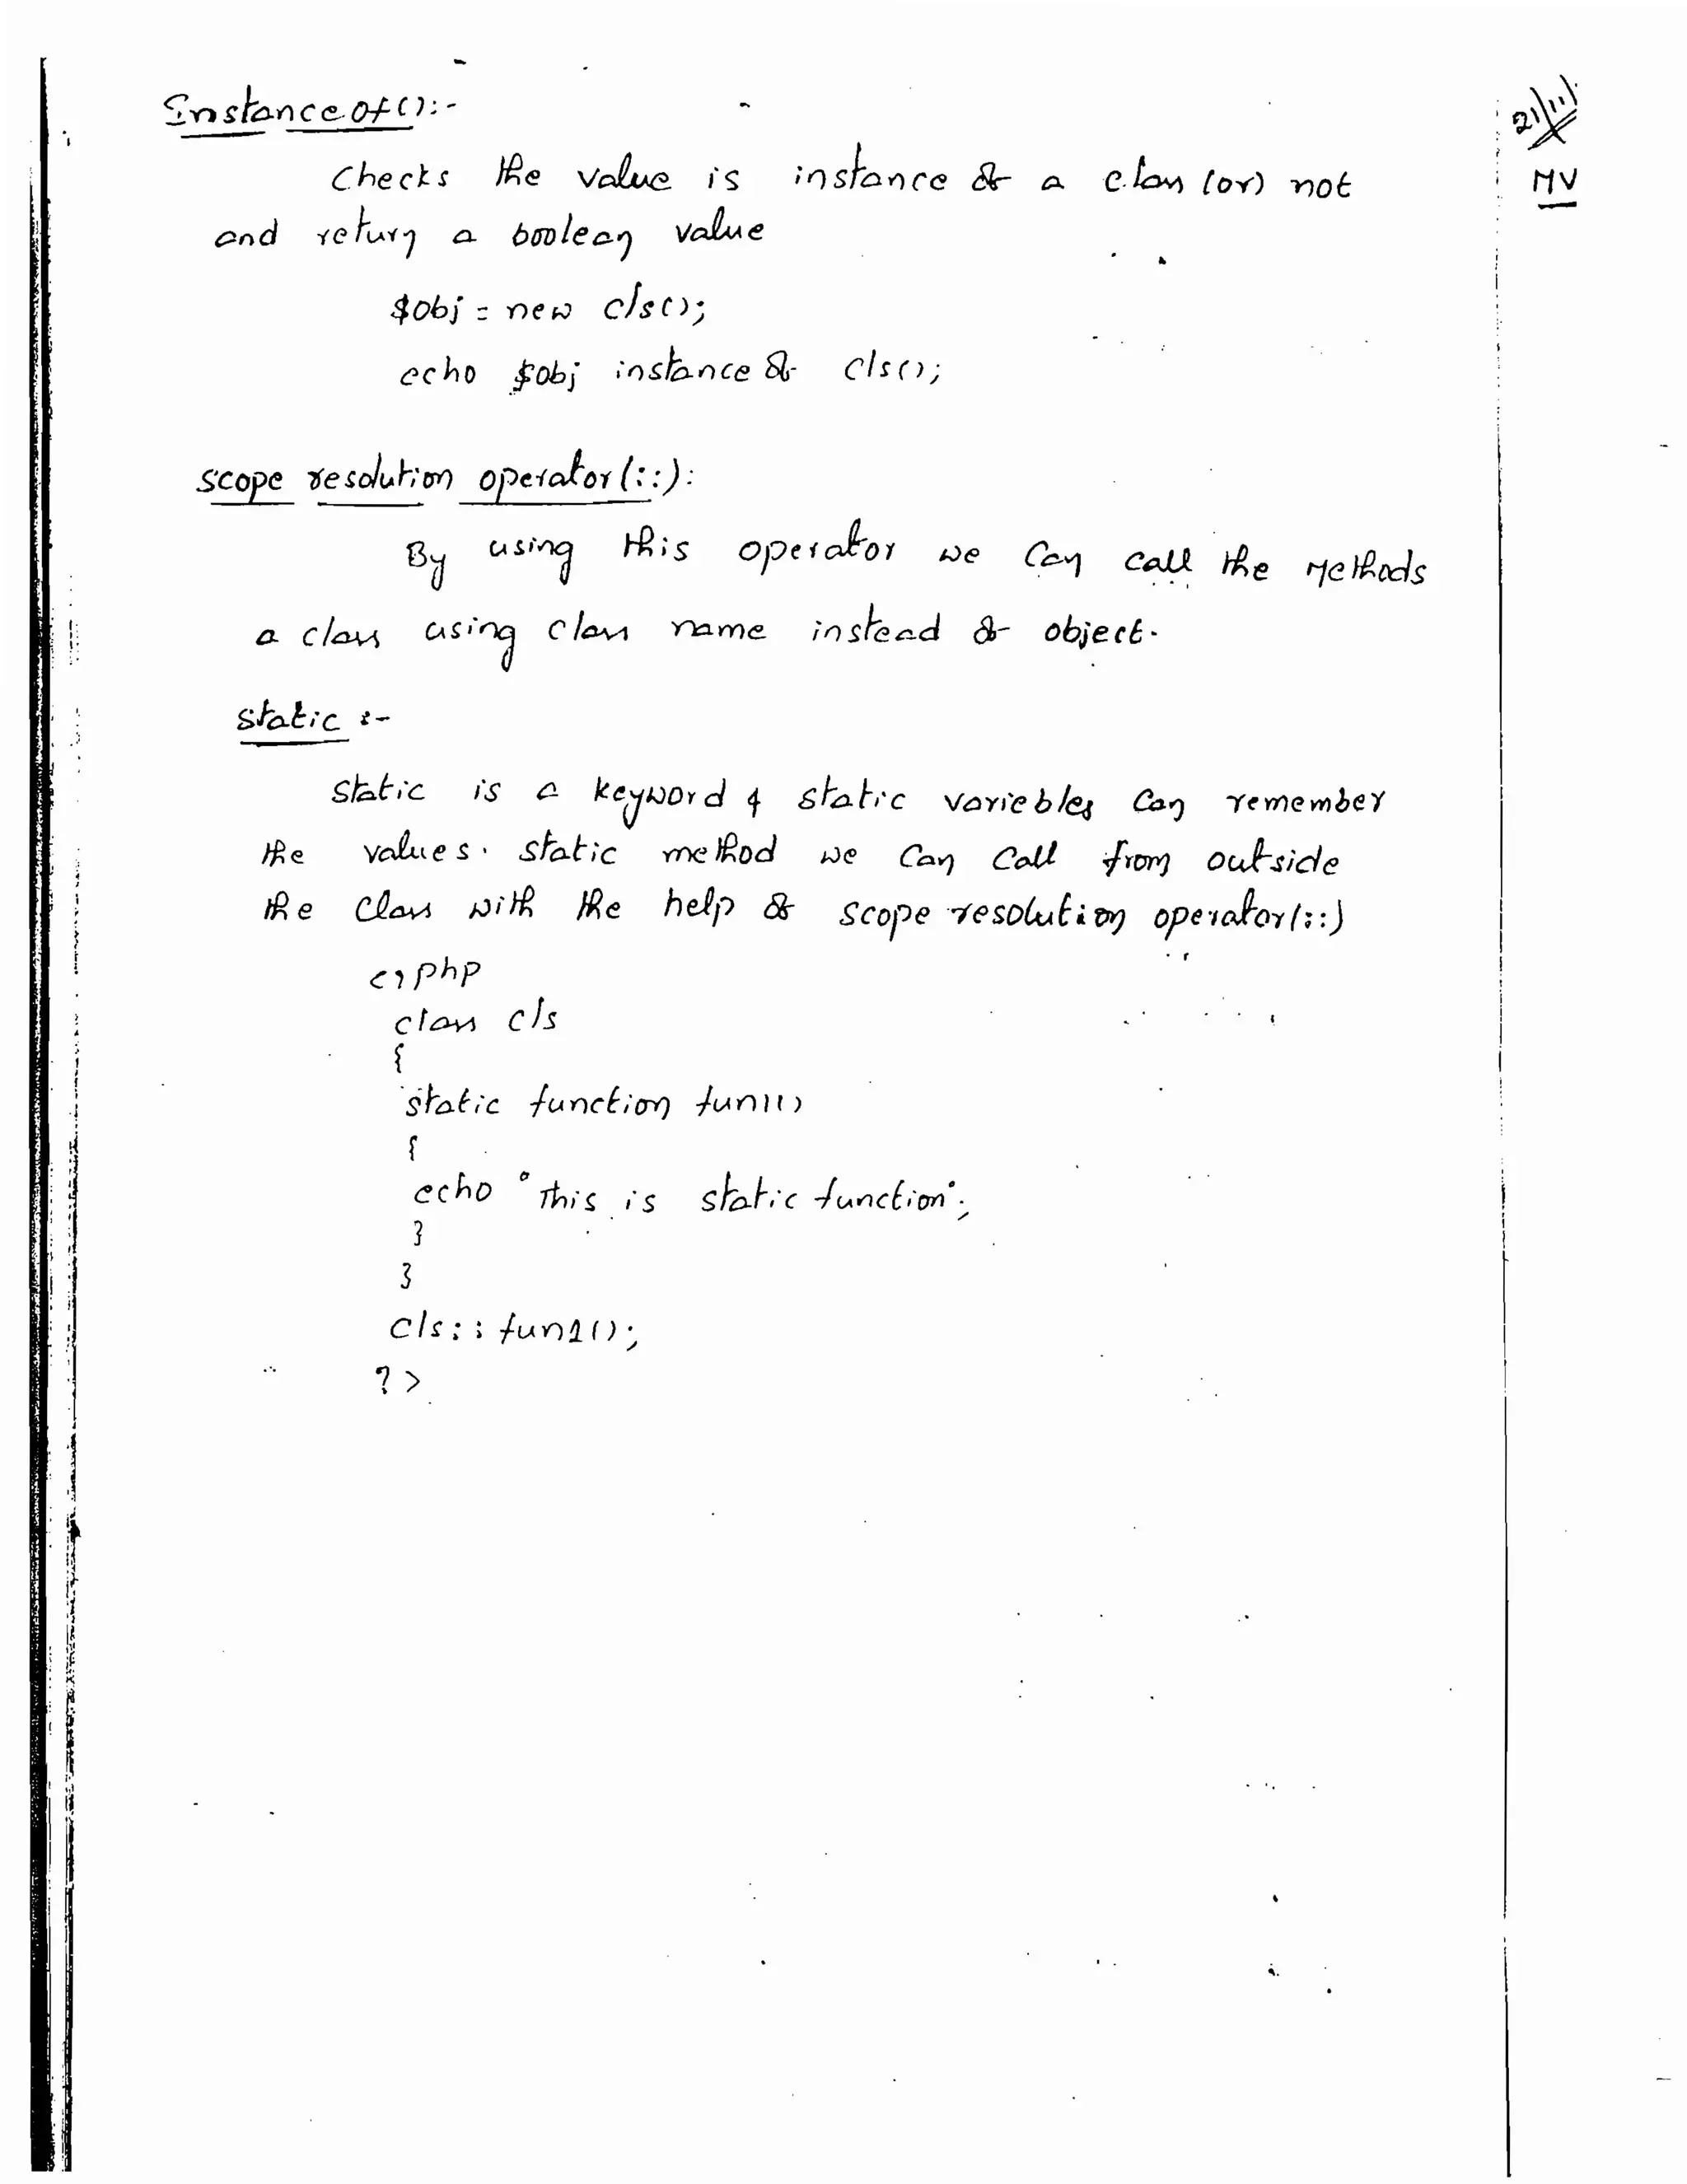 InstanceOf():-
21/11/
Checks the value is instance of a class (or) not
MV
and return a boolean value
$obj = new cls();
echo $obj instance of cls();
scope resolution operator(::):
By using this operator we can call the Methods
a class using class name instead of object.
static :-
static is a keyword & static variables can remember
the values. static method we can call from outside
the class with the help of scope resolution operator(::)
<?php
class cls
{
static function fun1()
{
echo "This is static function";
}
}
cls::fun1();
?>